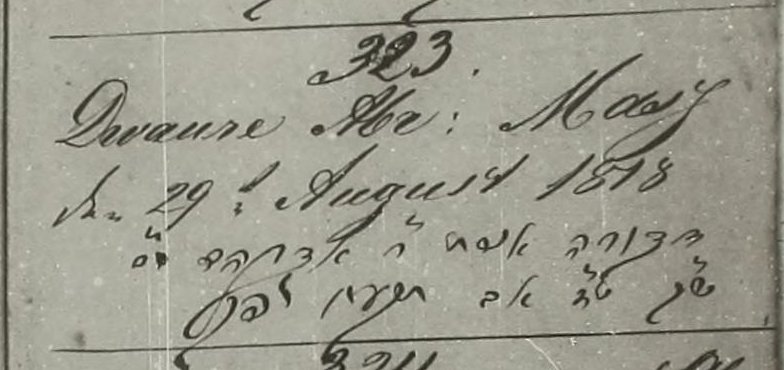 323.
Dwaure Abr: Mosy
den 29t August 1818
דבורה אשת ר' אברהם
ש"ק אב תקעח לפק